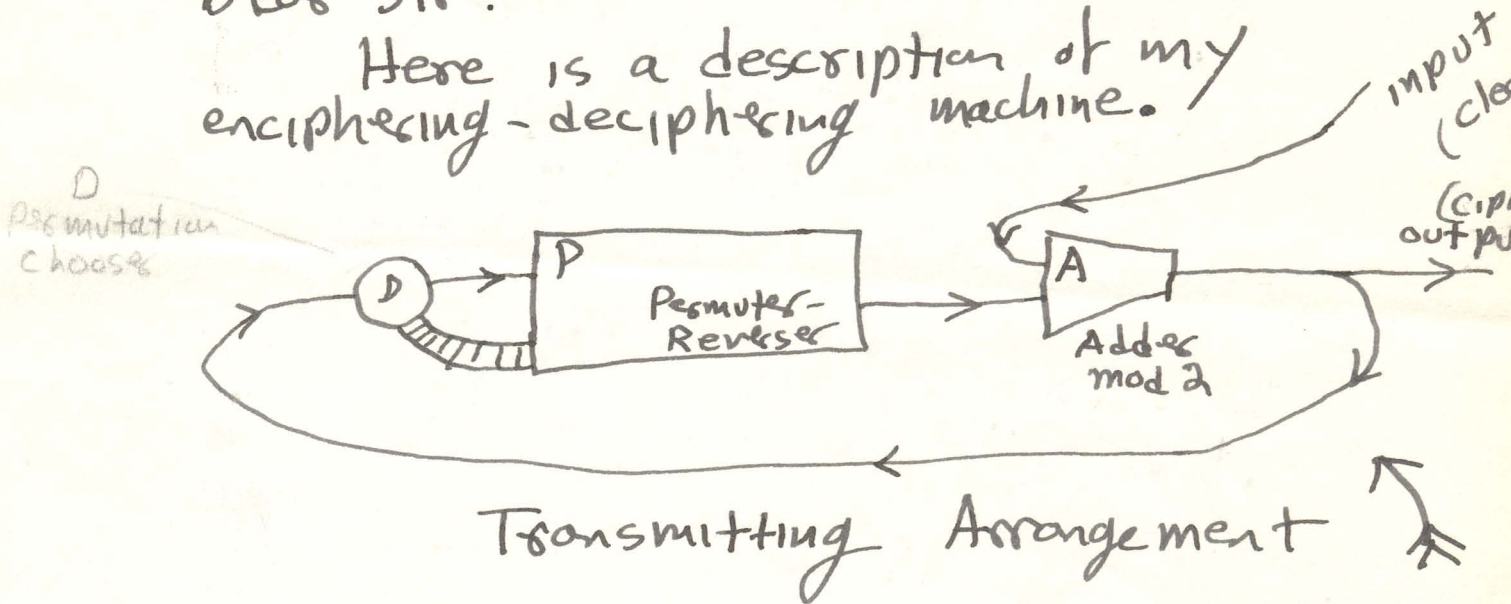 Here is a description of my
enciphering - deciphering machine.
input
D
Permutation
chooser
D
P
Permuter-
Reverser
A
Adder
mod 2
Transmitting Arrangement